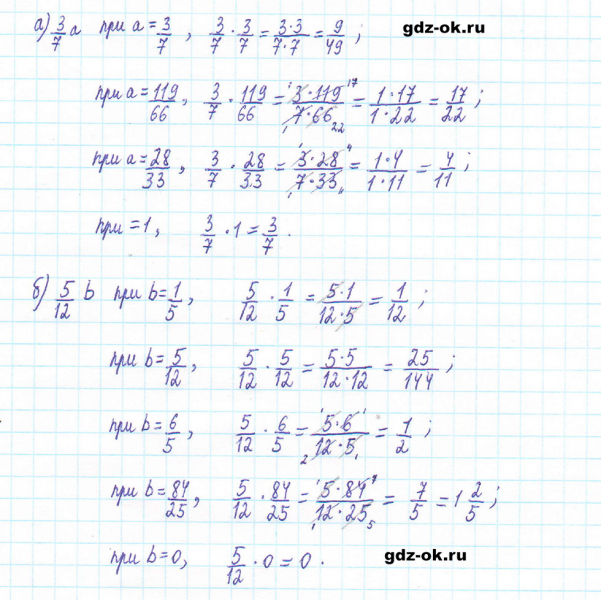 gdz-ok.ru
а) 3/7 a при a = 3/7, 3/7 · 3/7 = 3·3/7·7 = 9/49;
при a = 119/66, 3/7 · 119/66 = 3·119/7·66 = 1·17/1·22 = 17/22;
при a = 28/33, 3/7 · 28/33 = 3·28/7·33 = 1·4/1·11 = 4/11;
при = 1, 3/7 · 1 = 3/7.
б) 5/12 b при b = 1/5, 5/12 · 1/5 = 5·1/12·5 = 1/12;
при b = 5/12, 5/12 · 5/12 = 5·5/12·12 = 25/144;
при b = 6/5, 5/12 · 6/5 = 5·6/12·5 = 1/2;
при b = 84/25, 5/12 · 84/25 = 5·84/12·25 = 7/5 = 1 2/5;
при b = 0, 5/12 · 0 = 0.
gdz-ok.ru